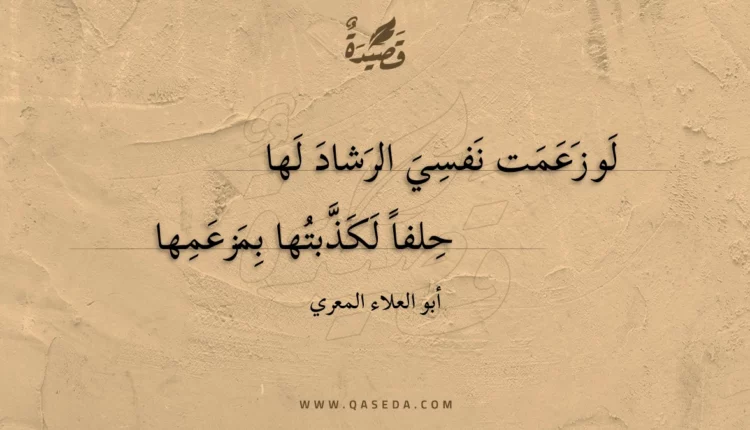 قَصِيدَةٌ
لَو زَعَمَت نَفسِيَ الرَشادَ لَها
حِلفاً لَكَذَّبتُها بِمَزعَمِها
أبو العلاء المعري
WWW.QASEDA.COM